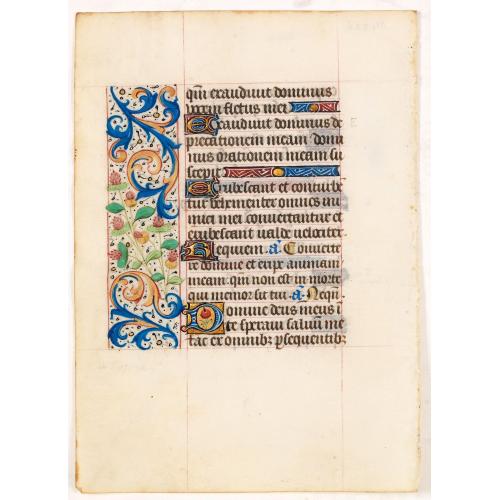 qm̄ exaudiuit dominus
vocem fletus mei
Exaudiuit dominus de
precationem meam domi
nus orationem meam su
scepit
Erubescant et conturbe
tur vehementer omnes ini
mici mei conuertantur et
erubescant ualde velociter
Requiem. añ. Conuerte
re domine et eripe animam
meam qm̄ non est in morte
qui memor sit tui añ. Neq̄
Domine deus meus i
te speraui saluū me
fac ex omnibꝫ ꝑsequentibꝫ